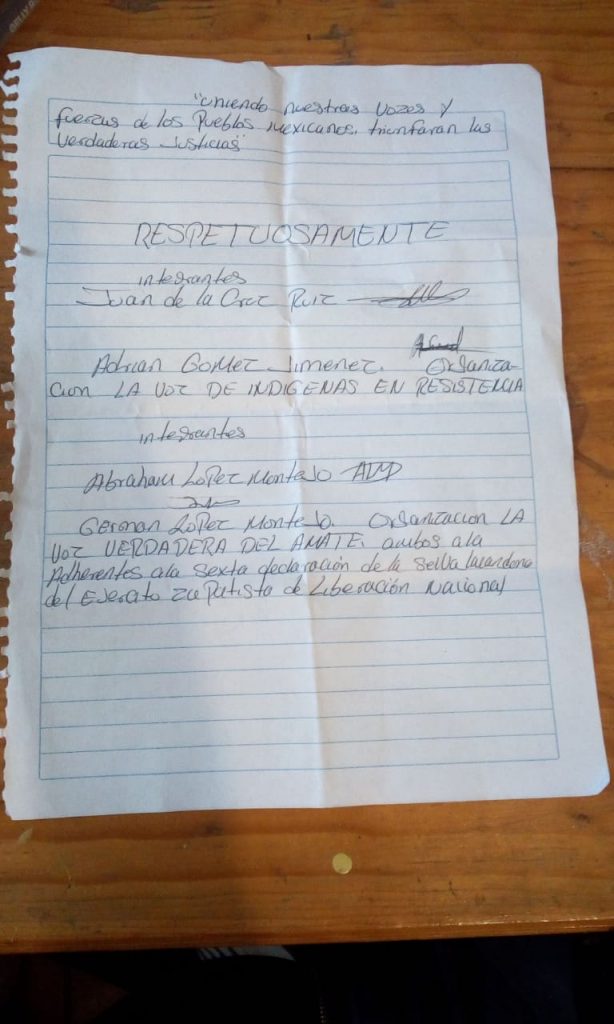 "uniendo nuestras vozes y
fuerzas de los Pueblos Mexicanos, triunfaran las
verdaderas Justicias"
RESPETUOSAMENTE
integrantes
Juan de la Cruz Ruiz
Adrian Gomez Jimenez. Organiza-
cion LA VOZ DE INDIGENAS EN RESISTENCIA
integrantes
Abraham López Montejo ALM
German López Montejo. Organizacion LA
VOZ VERDADERA DEL AMATE, ambos a la
Adherentes a la sexta declaración de la selva lacandona
del Ejercito zapatista de Liberación Nacional